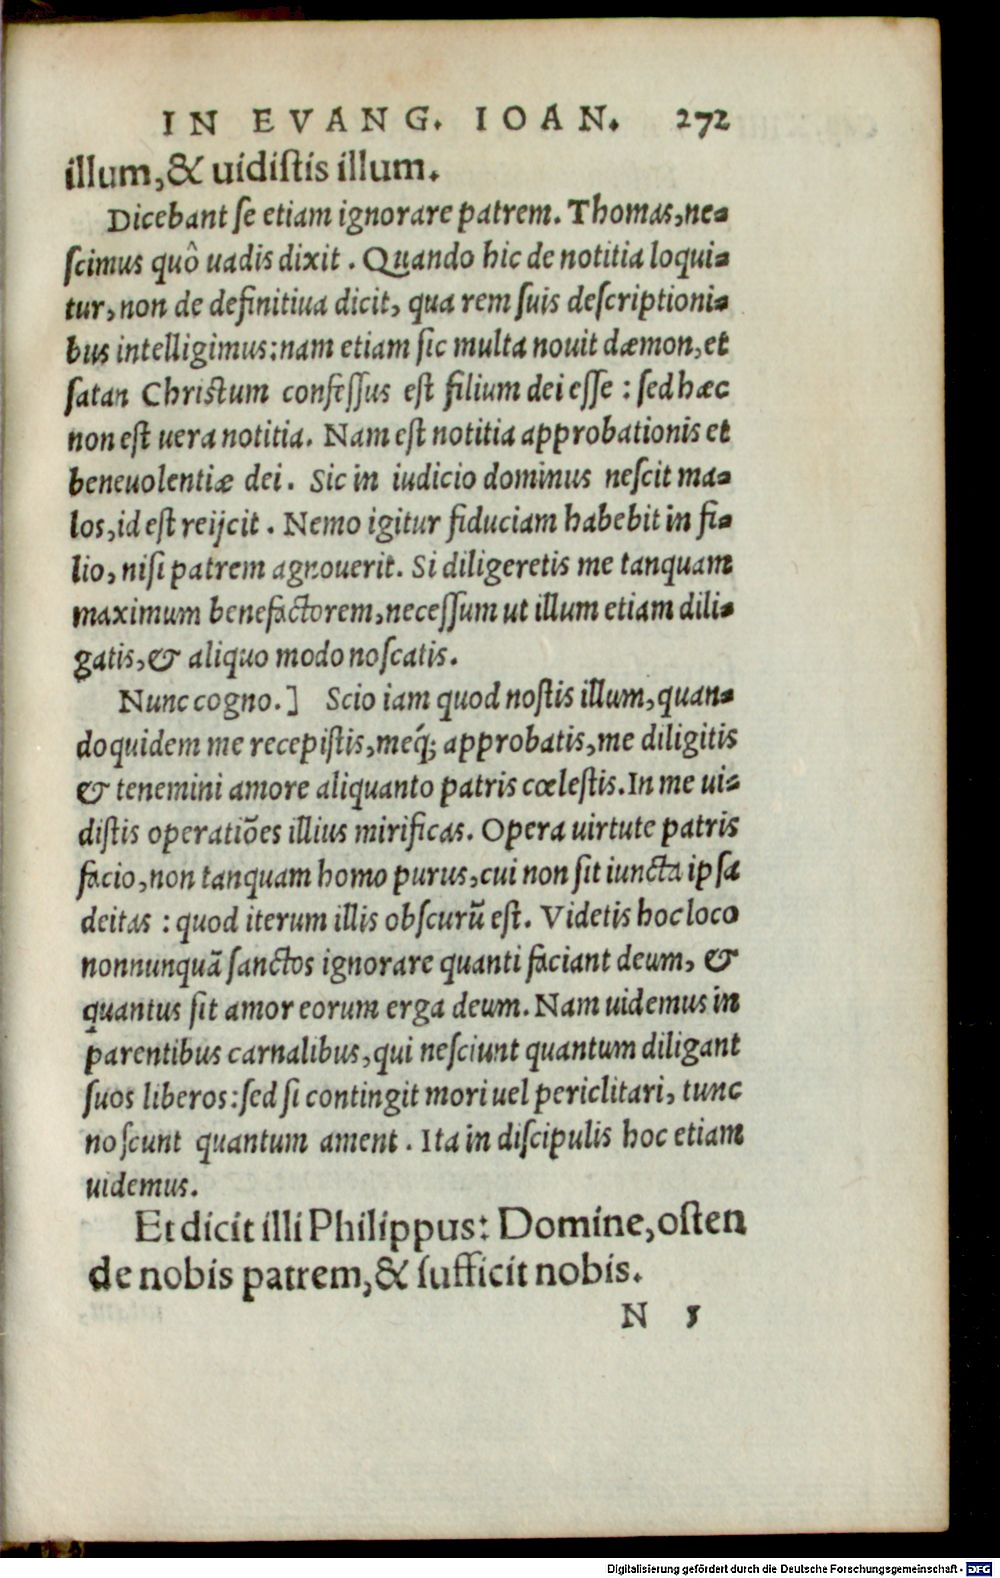 IN EVANG. IOAN. 272
illum, & uidistis illum.
Dicebant se etiam ignorare patrem. Thomas, ne-
scimus quô uadis dixit. Quando hic de notitia loqui-
tur, non de definitiua dicit, qua rem suis descriptioni-
bus intelligimus: nam etiam sic multa nouit dæmon, et
satan Christum confessus est filium dei esse: sed hæc
non est uera notitia. Nam est notitia approbationis et
beneuolentiæ dei. Sic in iudicio dominus nescit ma-
los, id est reijcit. Nemo igitur fiduciam habebit in fi-
lio, nisi patrem agnouerit. Si diligeretis me tanquam
maximum benefactorem, necessum ut illum etiam dili-
gatis, & aliquo modo noscatis.
Nunc cogno.] Scio iam quod nostis illum, quan-
doquidem me recepistis, meq́; approbatis, me diligitis
& tenemini amore aliquanto patris cœlestis. In me ui-
distis operatiões illius mirificas. Opera uirtute patris
facio, non tanquam homo purus, cui non sit iuncta ipsa
deitas: quod iterum illis obscurũ est. Videtis hoc loco
nonnunquã sanctos ignorare quanti faciant deum, &
quantus sit amor eorum erga deum. Nam uidemus in
parentibus carnalibus, qui nesciunt quantum diligant
suos liberos: sed si contingit mori uel periclitari, tunc
noscunt quantum ament. Ita in discipulis hoc etiam
uidemus.
Et dicit illi Philippus: Domine, osten
de nobis patrem, & sufficit nobis.
N 5
Digitalisierung gefördert durch die Deutsche Forschungsgemeinschaft - DFG